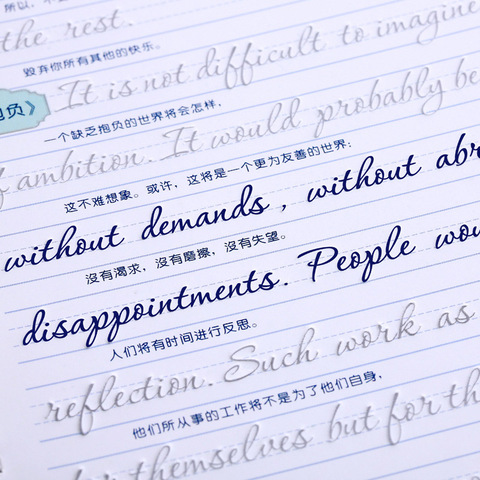 所以，
the rest.
毁弃你所有其他的快乐。
抱负》
It is not difficult to imagine
一个缺乏抱负的世界将会怎样，
of ambition. It would probably be
这不难想象。或许，这将是一个更为友善的世界：
without demands, without abr
沒有渴求，沒有磨擦，沒有失望。
disappointments. People wou
人们将有时间进行反思。
reflection. Such work as
他们所从事的工作将不是为了他们自身，
for themselves but for th